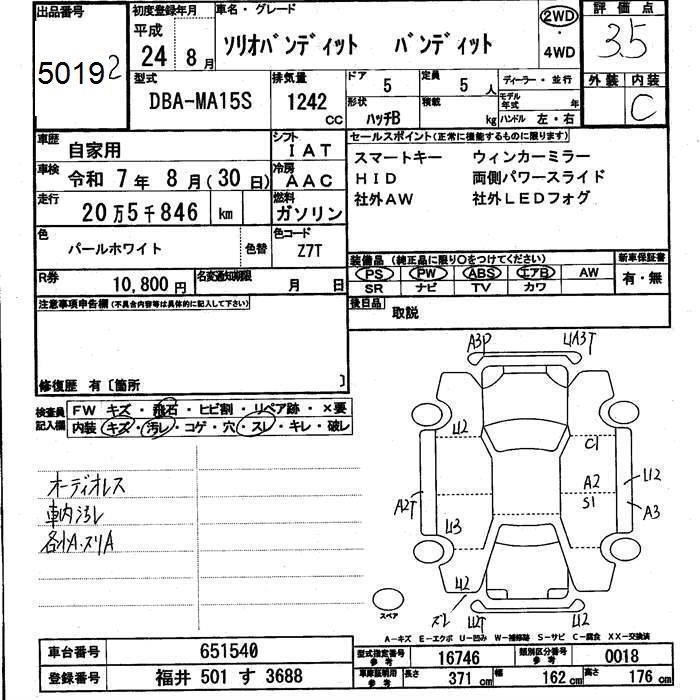 出品番号
50192
初度登録年月
平成
24 8月
車名・グレード
ソリオバンディット バンディット
2WD
・
4WD
評価点
3.5
型式
DBA-MA15S
排気量
1242 CC
ドア 5
定員 5人
ディーラー・並行
形状
ハッチB
積載 kg
モデル年式 年
ハンドル 左・右
外装 内装
C
車歴
自家用
シフト
IAT
セールスポイント(正常に機能するものに限ります)
車検
令和 7年 8月(30日)
冷房
AAC
スマートキー ウィンカーミラー
HID 両側パワースライド
社外AW 社外LEDフォグ
走行
20万5千846 km
燃料
ガソリン
色
パールホワイト
色替
色コード
Z7T
装備品(純正品に限り○をつけてください)
新車保証書
PS PW ABS エアB AW
SR ナビ TV カワ
有・無
R券
10,800円
名変通知期限
月 日
後日品
取説
注意事項申告欄(不具合内容等は具体的に記入して下さい)
修復歴 有〔箇所 〕
検査員記入欄
FW キズ・飛石・ヒビ割・リペア跡・×要
内装 キズ・汚レ・コゲ・穴・スレ・キレ・破レ
オーディオレス
車内汚レ
各小A・スリA
A3P
U3T
U2
C1
A2
S1
U2
A2T
A3
U3
U2
ズレ
U2T
U2
スペア
A-キズ E-エクボ U-凹み W-補修跡 S-サビ C-腐食 XX-交換済
車台番号
651540
型式指定番号
参考
16746
類別区分番号
参考
0018
登録番号
福井 501 す 3688
車庫証明用
参考
長さ 371cm
幅 162cm
高さ 176cm